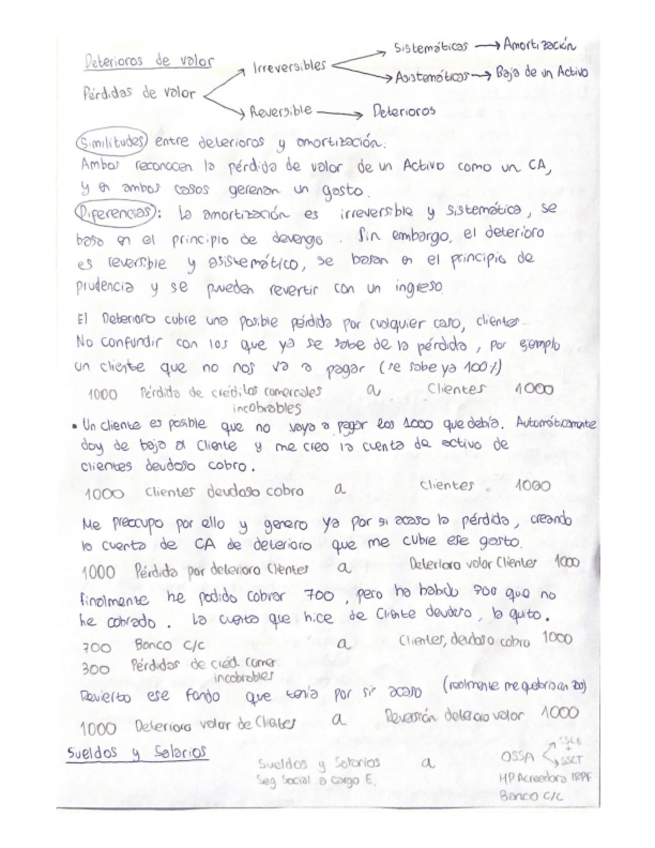 Deterioros de valor
Pérdidas de valor
Irreversibles
Sistemáticas → Amortización
Asistemáticas → Baja de un Activo
Reversible → Deterioros
Similitudes entre deterioros y amortización.
Ambos reconocen la pérdida de valor de un Activo como un CA,
y en ambos casos generan un gasto.
Diferencias: La amortización es irreversible y sistemática, se
basa en el principio de devengo. Sin embargo, el deterioro
es reversible y asistemático, se basan en el principio de
prudencia y se pueden revertir con un ingreso
El Deterioro cubre una posible pérdida por cualquier caso, clientes...
No confundir con los que ya se sabe de la pérdida, por ejemplo
un cliente que no nos va a pagar (se sabe ya 100%)
1000 Pérdida de créditos comerciales a Clientes 1000
incobrables
• Un cliente es posible que no vaya a pagar los 1000 que debía. Automáticamente
doy de baja al cliente y me creo la cuenta de activo de
clientes deudoso cobro.
1000 Clientes deudoso cobro a Clientes. 1000
Me preocupo por ello y genero ya por si acaso la pérdida, creando
la cuenta de CA de deterioro que me cubre ese gasto.
1000 Pérdida por deterioro Clientes a Deterioro valor Clientes 1000
finalmente he podido cobrar 700, pero ha habido 300 que no
he cobrado. La cuenta que hice de Cliente deudoso, la quito.
700 Banco C/C a Clientes, deudoso cobro 1000
300 Pérdidas de créd. comer
incobrables
Revierto ese fondo que tenía por si acaso (realmente me quebraron 300)
1000 Deterioro valor de Clientes a Reversión deterioro valor 1000
Sueldos y Salarios
Sueldos y Salarios a OSSA
SSCE
+
SSCT
Seg Social a cargo E. HP Acreedora IRPF
Banco C/C